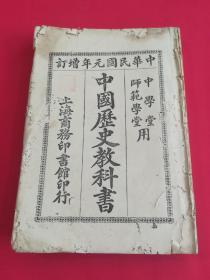 中華民國元年增訂
中學堂
師範學堂
用
中國歷史教科書
上海商務印書館印行